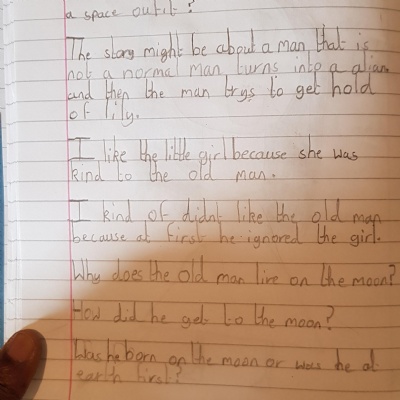 a space outfit?
The story might be about a man that is
not a normal man turns into a alian
and then the man trys to get hold
of lily.
I like the little girl because she was
kind to the old man.
I kind of didnt like the old man
because at first he ignored the girl.
Why does the old man live on the moon?
How did he get to the moon?
Was he born on the moon or was he at
earth first?